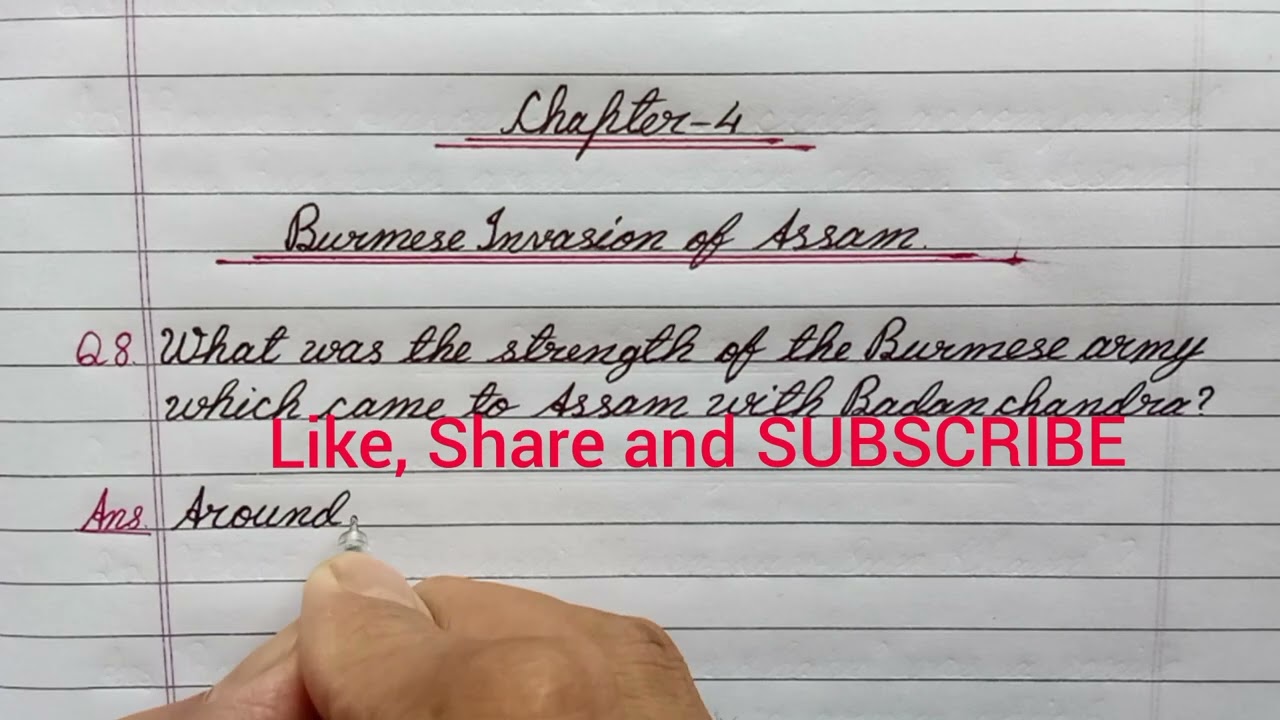 Chapter-4
Burmese Invasion of Assam.
Q8. What was the strength of the Burmese army
which came to Assam with Badanchandra?
Like, Share and SUBSCRIBE
Ans. Around